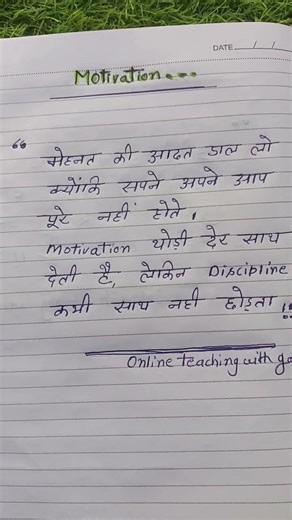 DATE
Motivation...
“ मेहनत की आदत डाल लो
क्योंकि सपने अपने आप
पूरे नहीं होते,
Motivation थोड़ी देर साथ
देती है, लेकिन Discipline
कभी साथ नही छोड़ता !!
Online teaching with